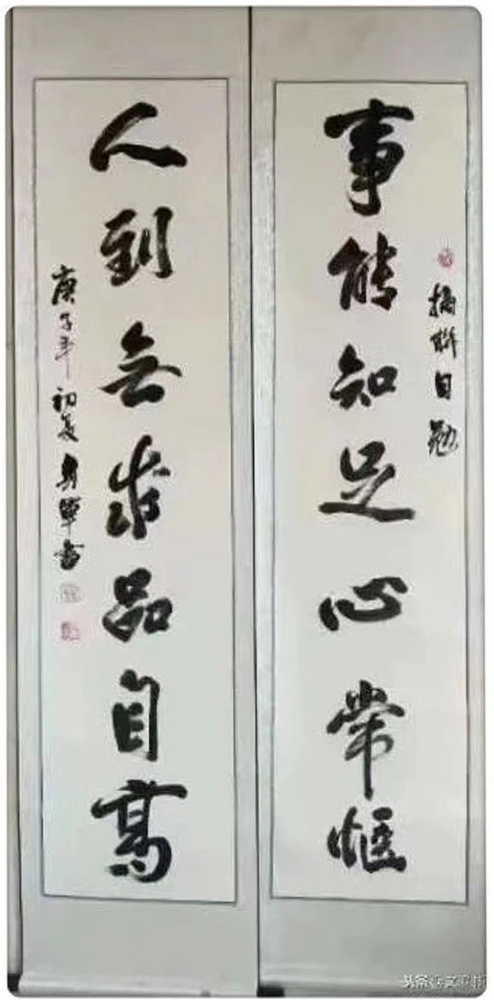 摘联自勉
事能知足心常惬
人到无求品自高
庚子年初夏
头条@文